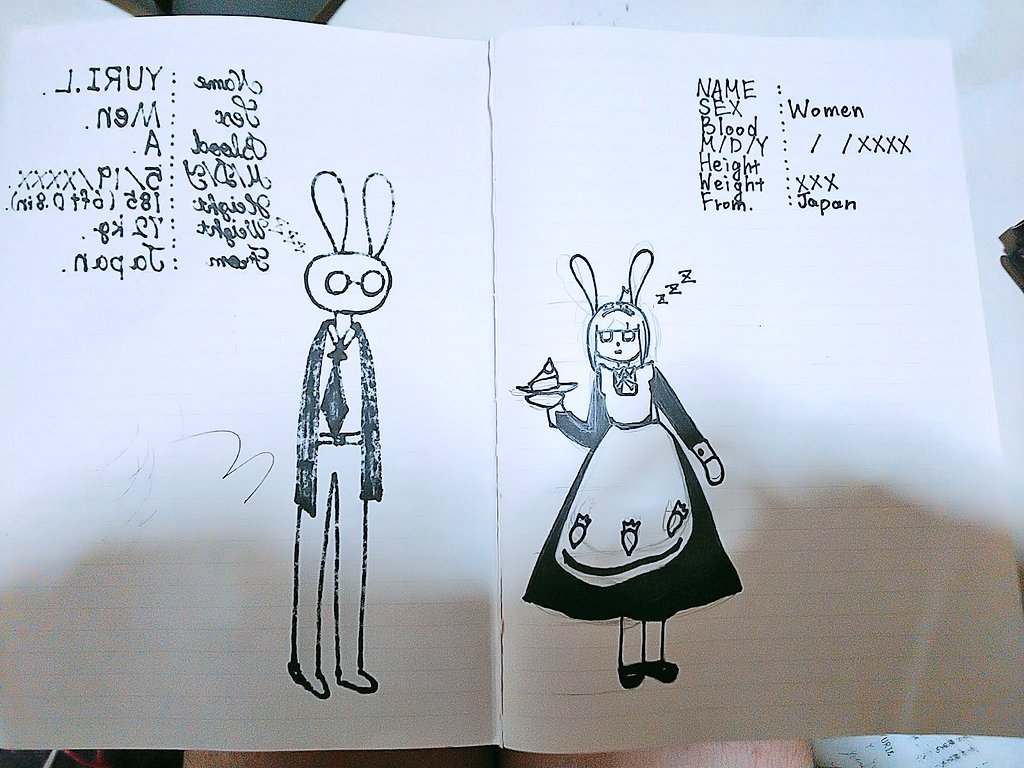 Name : YURI.L.
Sex : Men.
Blood : A.
M/D/Y : 5/19/XXXX.
Height : 185(6ft0.8in).
Weight : 72kg.
From : Japan.
zzz
NAME :
SEX : Women
Blood :
M/D/Y : / /XXXX
Height :
Weight : XXX
From. : Japan
zzz